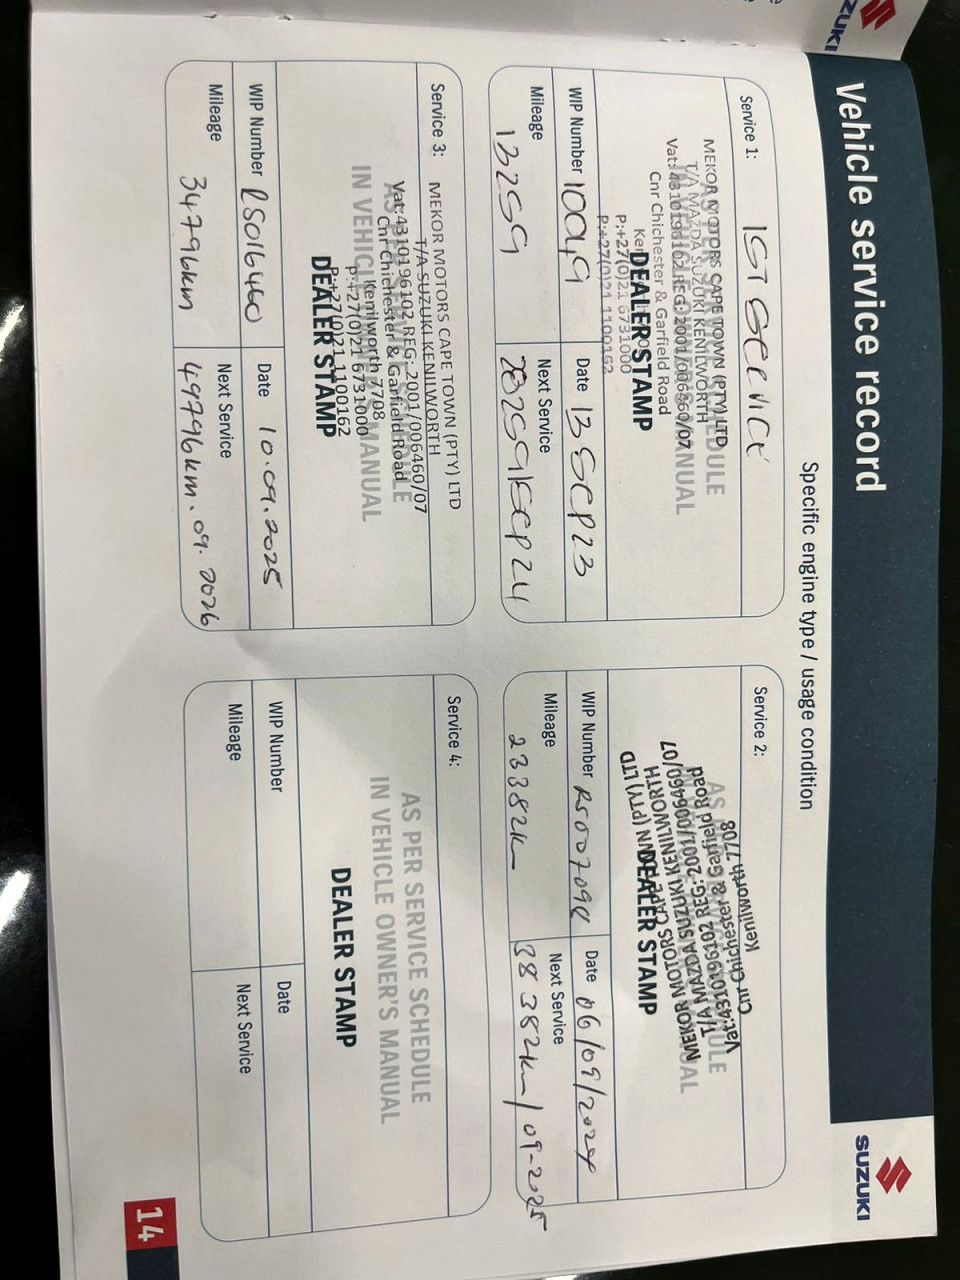 SUZUKI
Vehicle service record
SUZUKI
Specific engine type / usage condition
Service 1:
1ST SERVICE
MEKOR MOTORS CAPE TOWN (PTY) LTD
T/A MAZDA SUZUKI KENILWORTH
Vat:4310196102 REG:2001/006460/07
Cnr Chichester & Garfield Road
P:+27(0)21 6731000
P:+27(0)21 1100162
DEALER STAMP
WIP Number 10049
Date 13 SEP 23
Mileage
13259
Next Service
28259/SEP 24
Service 2:
Kenilworth 7708
Cnr Chichester & Garfield Road
Vat:4310196102 REG:2001/006460/07
T/A MAZDA SUZUKI KENILWORTH
MEKOR MOTORS CAPE TOWN (PTY) LTD
DEALER STAMP
WIP Number
Date 06/09/2024
Mileage
23382km
Next Service
38 382km/09-2025
Service 3:
MEKOR MOTORS CAPE TOWN (PTY) LTD
T/A SUZUKI KENILWORTH
Vat:4310196102 REG: 2001/006460/07
Cnr Chichester & Garfield Road
Kenilworth 7708
P:+27(0)21 6731000
P:+27(0)21 1100162
IN VEHICLE OWNER'S MANUAL
DEALER STAMP
WIP Number RS016460
Date 10.09.2025
Mileage
34796km
Next Service
49796km. 09. 2026
Service 4:
AS PER SERVICE SCHEDULE
IN VEHICLE OWNER'S MANUAL
DEALER STAMP
WIP Number
Date
Mileage
Next Service
14